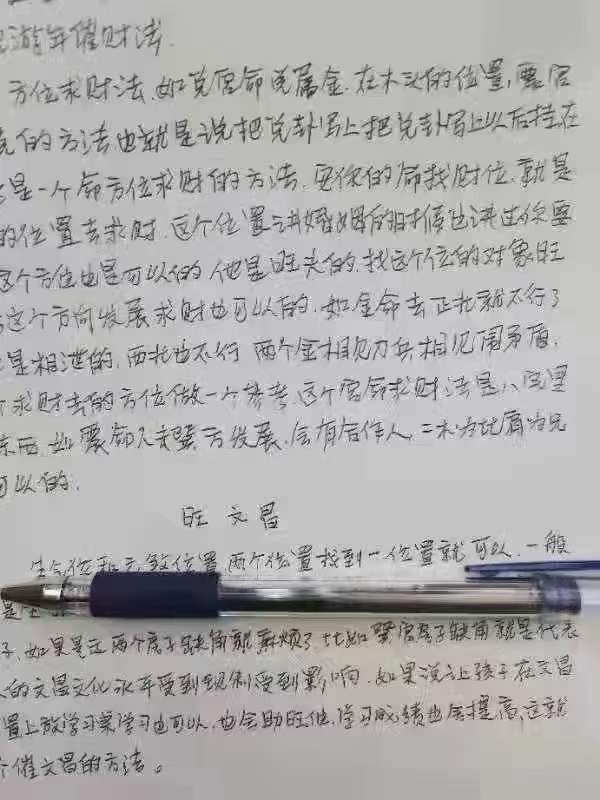 游年催财法.
方位求财法.如兑宫命兑属金.在木头的位置,震宫
的方法也就是说把兑卦写上把兑卦写上以后挂在
是一个命方位求财的方法.要你的命找财位.就是
的位置去求财.这个位置讲婚姻的时候也讲过你要
这个方位也是可以的他是旺夫的.找这个位的对象旺
这个方向发展求财也可以的.如金命去正北就不行了
是相泄的.西北也不行两个金相见刀兵相见闹矛盾.
求财去的方位做一个参考.这个宫命求财法是八宅里
东西.如震命人去震方发展.会有合作人.二木为比肩为兄
可以的.
旺文昌
生气位和天医位置.两个位置找到一位置就可以.一般
是
子.如果是这两个房子缺角就麻烦了比如巽宫房子缺角就是代表
的文昌文化水平受到限制受到影响.如果说让孩子在文昌
置上放学习桌学习也可以.也会助旺他.学习成绩也会提高,这就
个催文昌的方法。